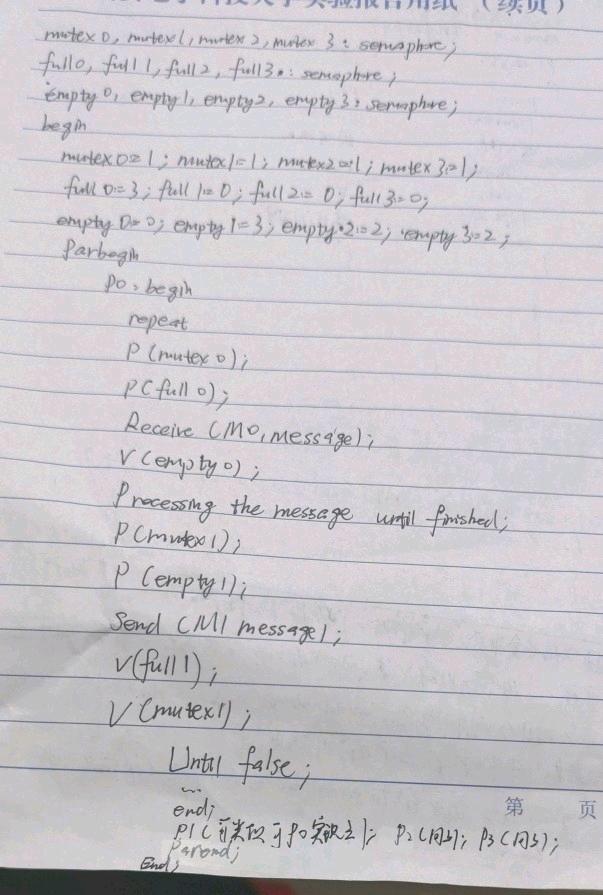 实验报告用纸 (续页)
mutex 0, mutex 1, mutex 2, mutex 3: semaphore;
full 0, full 1, full 2, full 3: semaphore;
empty 0, empty 1, empty 2, empty 3: semaphore;
begin
mutex 0:=1; mutex 1:=1; mutex 2:=1; mutex 3:=1;
full 0:=3; full 1:=0; full 2:=0; full 3:=0;
empty 0:=0; empty 1:=3; empty 2:=2; empty 3:=2;
Parbegin
P0: begin
repeat
P(mutex 0);
P(full 0);
Receive (M0, message);
V(empty 0);
Processing the message until finished;
P(mutex 1);
P(empty 1);
Send (M1 message);
V(full 1);
V(mutex 1);
Until false;
...
end;
第 页
P1( 类似于P0 ); P2(同上); P3(同上);
Parend;
End;